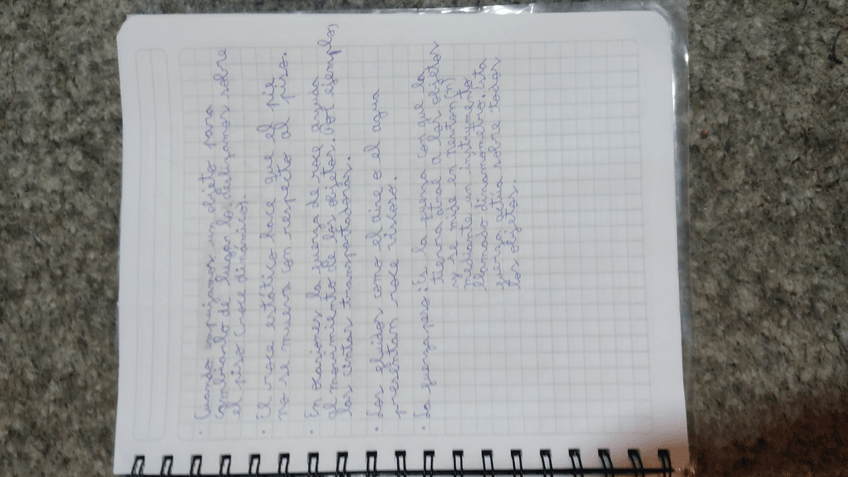 · Cuando empujamos un objeto para
cambiarlo de lugar lo deslizamos sobre
el piso (roce dinamico).
· El roce estático hace que el pie
no se mueva con respecto al piso.
· En ocasiones la fuerza de roce ayuda
al movimiento de los objetos. Por ejemplo,
las cintas transportadoras.
· Los fluidos como el aire o el agua
presentan roce viscoso.
· La fuerza peso: Es la fuerza con que la
tierra atrae a los objetos
y se mide en newton (N)
mediante un instrumento
llamado dinamometro. Esta
fuerza actua sobre todos
los objetos.